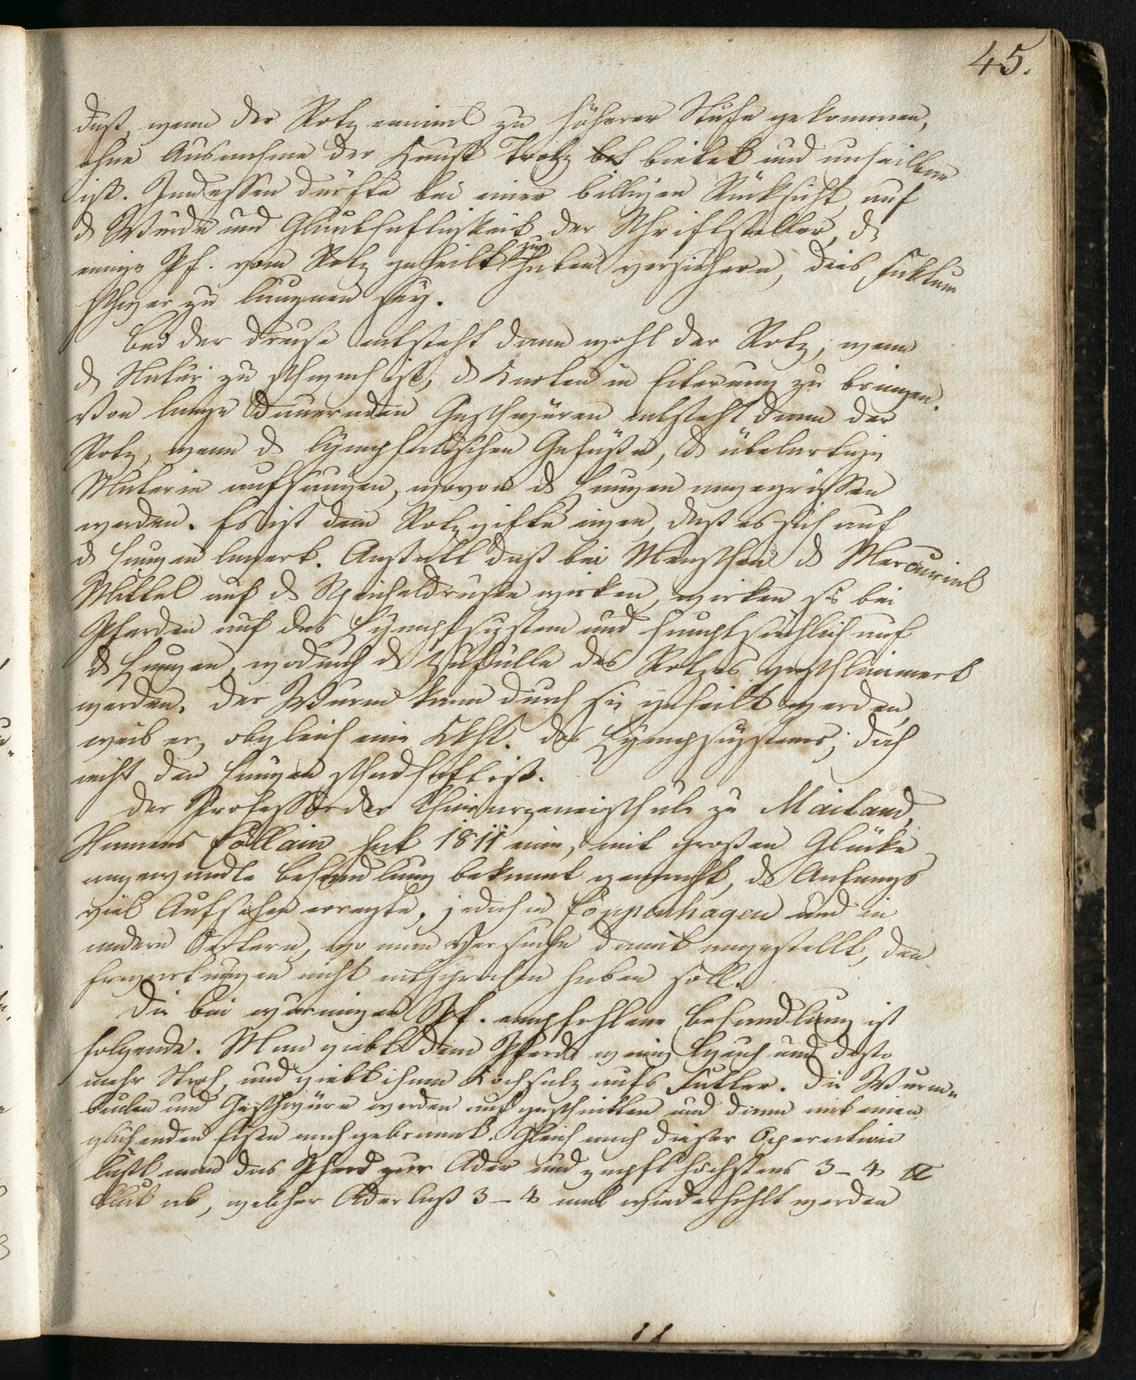 45.
daß, wenn der Rotz einmal zu höherer Stufe gekommen,
ohne Ausnahme der Kunst Trotz bietet und unheilbar
ist. Indessen dürfte bei einer billigen Rücksicht auf
d Würde und Glaubhaftigkeit der Schriftsteller, d
einige Pf. vom Rotz geheilt zu haben versichern, dies Faktum
schwer zu läugnen sey.
Bei der Druse entsteht dann wohl der Rotz, wenn
d Natur zu schwach ist, d Knoten in Eiterung zu bringen.
Von lange dauernden Geschwüren entsteht dann der
Rotz, wenn d lymphatischen Gefäße, d übelartige
Materie aufsaugen, wovon d Lungen angegriffen
werden. Es ist dem Rotzgifte eigen, daß es sich auf
d Lungen lagert. Anstatt daß bei Menschen d Mercurial
Mittel auf d Speicheldrüsen wirken, wirken sie bei
Pferden auf das Lymphsystem und hauptsächlich auf
d Lungen, wodurch d Zufälle des Rotzes verschlimmert
werden. Der Wurm kann durch sie geheilt werden,
weil er, obgleich eine Kkht. des Lymphsystems, doch
nicht den Lungen schadhaft ist.
Der Professor der Thierarzneischule zu Mailand,
Namens Vollain hat 1811 eine, mit großen Glücke
angewandte Behandlung bekannt gemacht, d Anfangs
viel Aufsehen erregte, jedoch in Coppenhagen und in
andern Oertern, wo man Versuche damit angestellt, den
Erwartungen nicht entsprochen haben soll.
Die bei wurmigen Pf. empfohlene Behandlung ist
folgende. Man giebt dem Pferde wenig Heu und desto
mehr Stroh, und giebt ihm Kochsalz aufs Futter. Die Wurm-
beulen und Geschwüre werden aufgeschnitten und dann mit einem
glühenden Eisen nachgebrannt. Gleich nach dieser Operation
läßt man das Pferd zur Ader und zapft höchstens 3-4 ℔
Blut ab, welcher Aderlaß 3-4 mal wiederhohlt werden